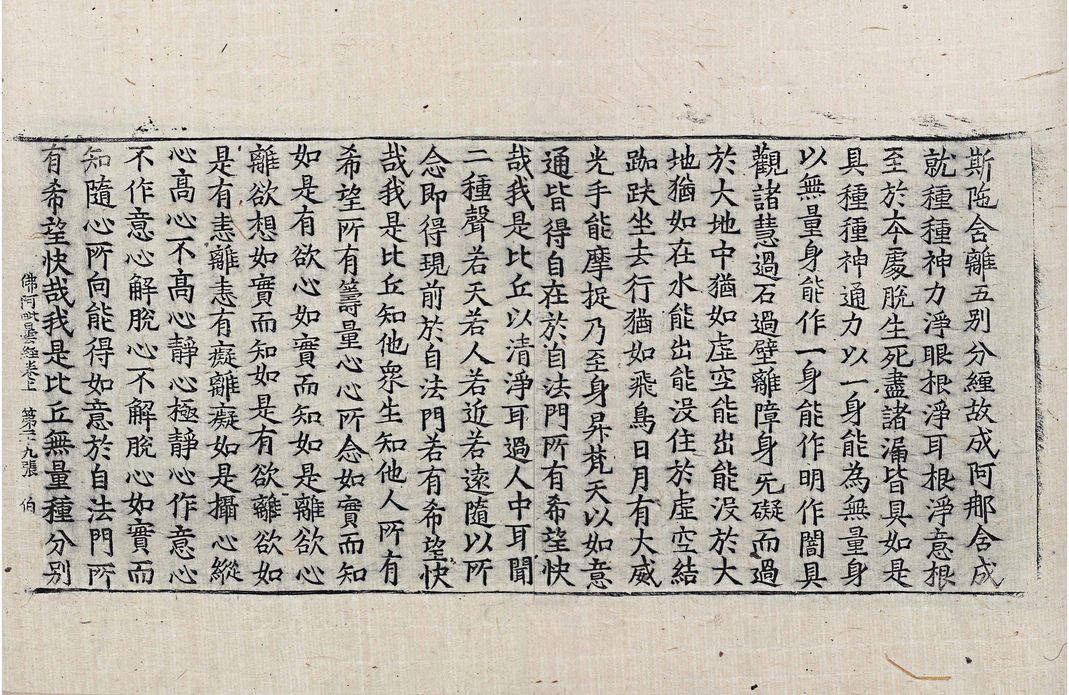 斯陁含離五别分纏故成阿那含成
就種種神力淨眼根淨耳根淨意根
至於今處脫生死盡諸漏皆具如是
具種種神通力以一身能為無量身
以無量身能作一身能作明作闇具
觀諸慧過石過壁離障身无礙而過
於大地中猶如虛空能出能没於大
地猶如在水能出能没住於虛空結
跏趺坐去行猶如飛鳥日月有大威
光手能摩捉乃至身昇梵天以如意
通皆得自在於自法門所有希望快
哉我是比丘以清淨耳過人中耳聞
二種聲若天若人若近若遠隨以所
念即得現前於自法門若有希望快
哉我是比丘知他衆生知他人所有
希望所有籌量心心所念如實而知
如是有欲心如實而知如是離欲心
離欲想如實而知如是有欲離欲如
是有恚離恚有癡離癡如是攝心縱
心高心不高心靜心極靜心作意心
不作意心解脫心不解脫心如實而
知隨心所向能得如意於自法門所
有希望快哉我是比丘無量種分别
佛阿毗曇經卷上 第二十九張 伯